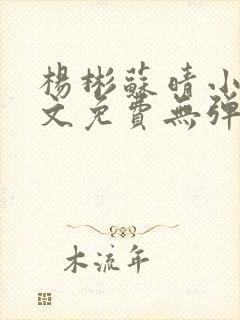 楊彬蘇晴小
文免費無彈
木流年